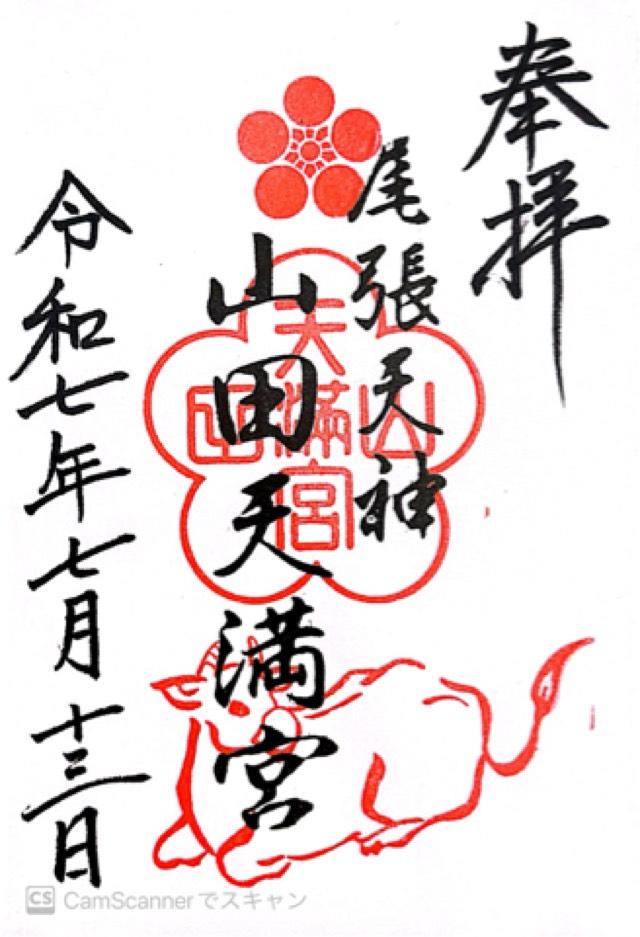 奉拝
尾張天神
山田天満宮
山田天満宮
令和七年七月十三日
CS CamScannerでスキャン